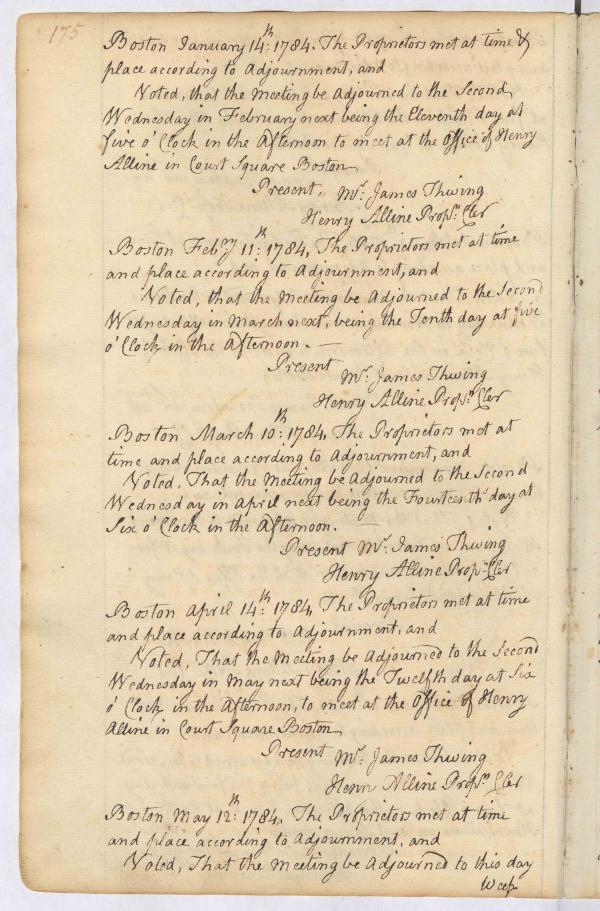 175
Boston January 14th: 1784. The Proprietors met at time &
place according to Adjournment, and
Voted, that the Meeting be Adjourned to the Second
Wednesday in February next being the Eleventh day at
five o'Clock in the Afternoon to meet at the Office of Henry
Alline in Court Square Boston
Present, Mr. James Thwing
Henry Alline Propsrs Cler
Boston Febry 11th: 1784, The Proprietors met at time
and place according to Adjournment, and
Voted, that the Meeting be Adjourned to the Second
Wednesday in March next, being the Tenth day at five
o'Clock in the Afternoon. —
Present
Mr. James Thwing
Henry Alline Propsrs Cler
Boston March 10th: 1784, The Proprietors met at
time and place according to Adjournment, and
Voted, That the Meeting be Adjourned to the Second
Wednesday in April next being the Fourteenth day at
Six o'Clock in the Afternoon. —
Present Mr. James Thwing
Henry Alline Propsrs Cler
Boston April 14th: 1784, The Proprietors met at time
and place according to Adjournment, and
Voted, That the Meeting be Adjourned to the Second
Wednesday in May next being the Twelfth day at Six
o'Clock in the Afternoon, to meet at the Office of Henry
Alline in Court Square Boston
Present Mr. James Thwing
Henry Alline Propsrs Cler
Boston May 12th: 1784, The Proprietors met at time
and place according to Adjournment, and
Voted, That the Meeting be Adjourned to this day
Week